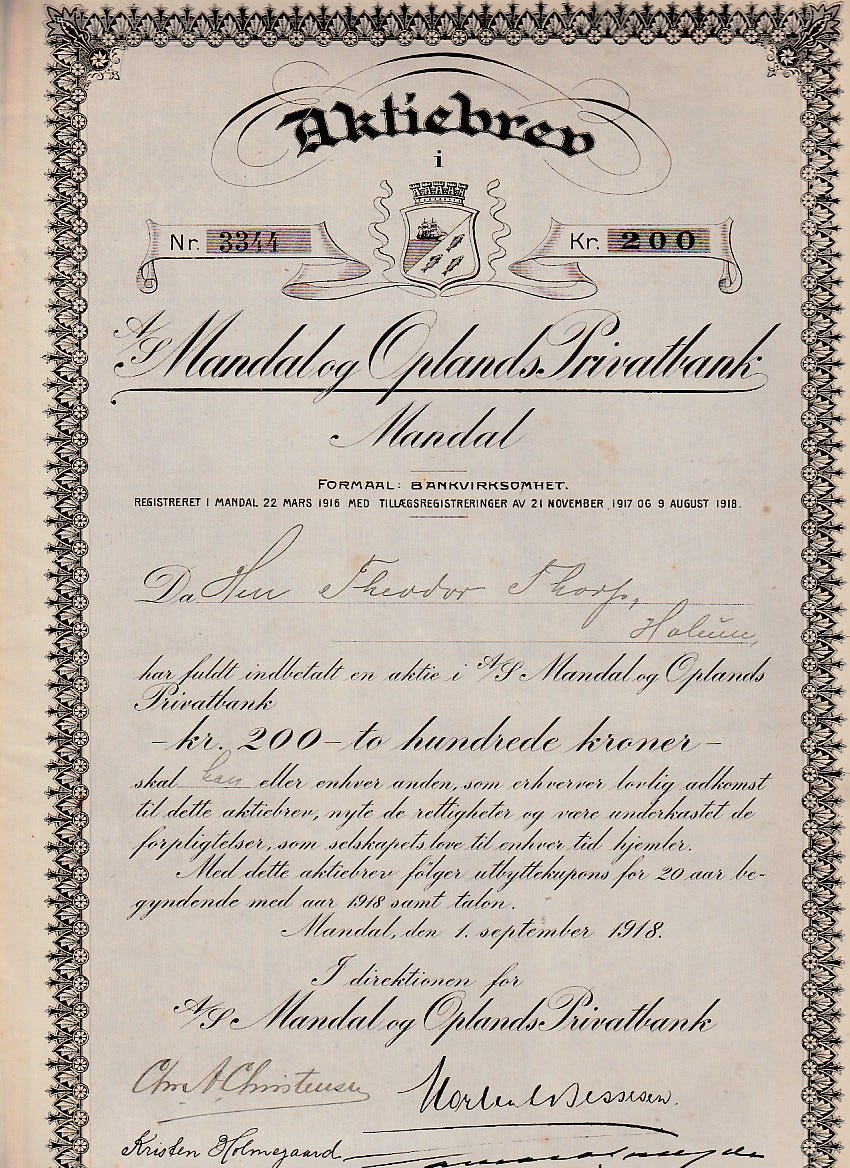 Aktiebrev
i
Nr. 3344 Kr. 200
A/S Mandal og Oplands Privatbank
Mandal
FORMAAL: BANKVIRKSOMHET.
REGISTRERET I MANDAL 22 MARS 1916 MED TILLÆGSREGISTRERINGER AV 21 NOVEMBER 1917 OG 9 AUGUST 1918.
Da Herr Theodor Thorp,
Holum,
har fuldt indbetalt en aktie i A/S Mandal og Oplands
Privatbank
– kr. 200 – to hundrede kroner –
skal han eller enhver anden, som erhverver lovlig adkomst
til dette aktiebrev, nyte de rettigheter og være underkastet de
forpligtelser, som selskapets love til enhver tid hjemler.
Med dette aktiebrev følger utbyttekupons for 20 aar be-
gyndende med aar 1918 samt talon.
Mandal, den 1. september 1918.
I direktionen for
A/S Mandal og Oplands Privatbank
Chr. A. Christensen Morten Bessesen.
Kristen Holmegaard